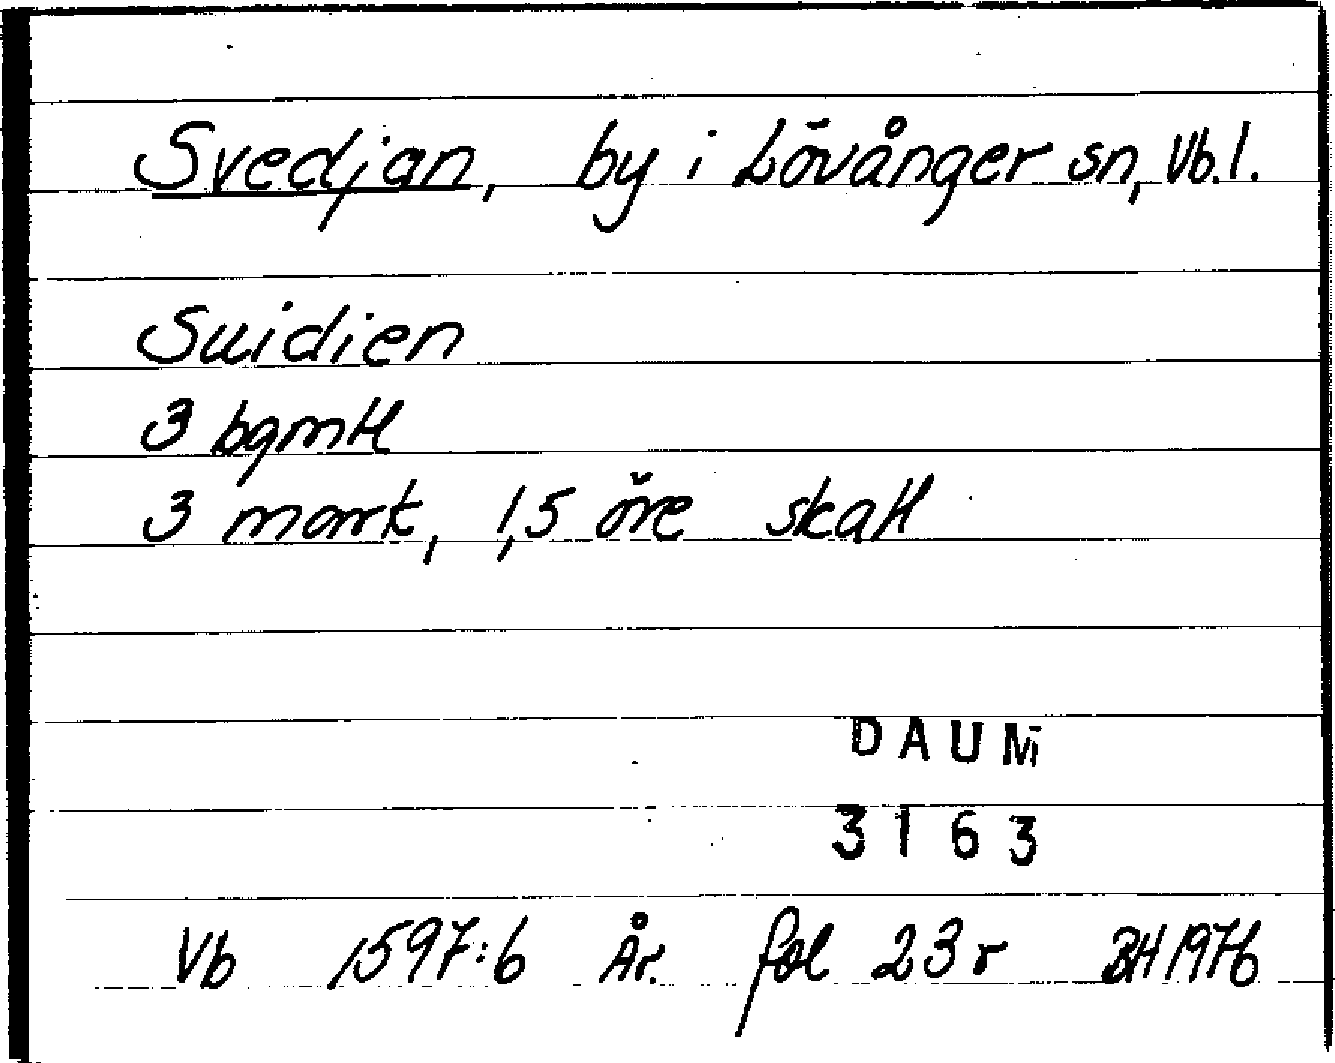 Svedjan, by i Lövånger sn, Vb.l.
Suidien
3 bgmtl
3 mark, 1,5 öre skatt
DAUM
3163
Vb 1597:6 År. fol 23r BH 1976